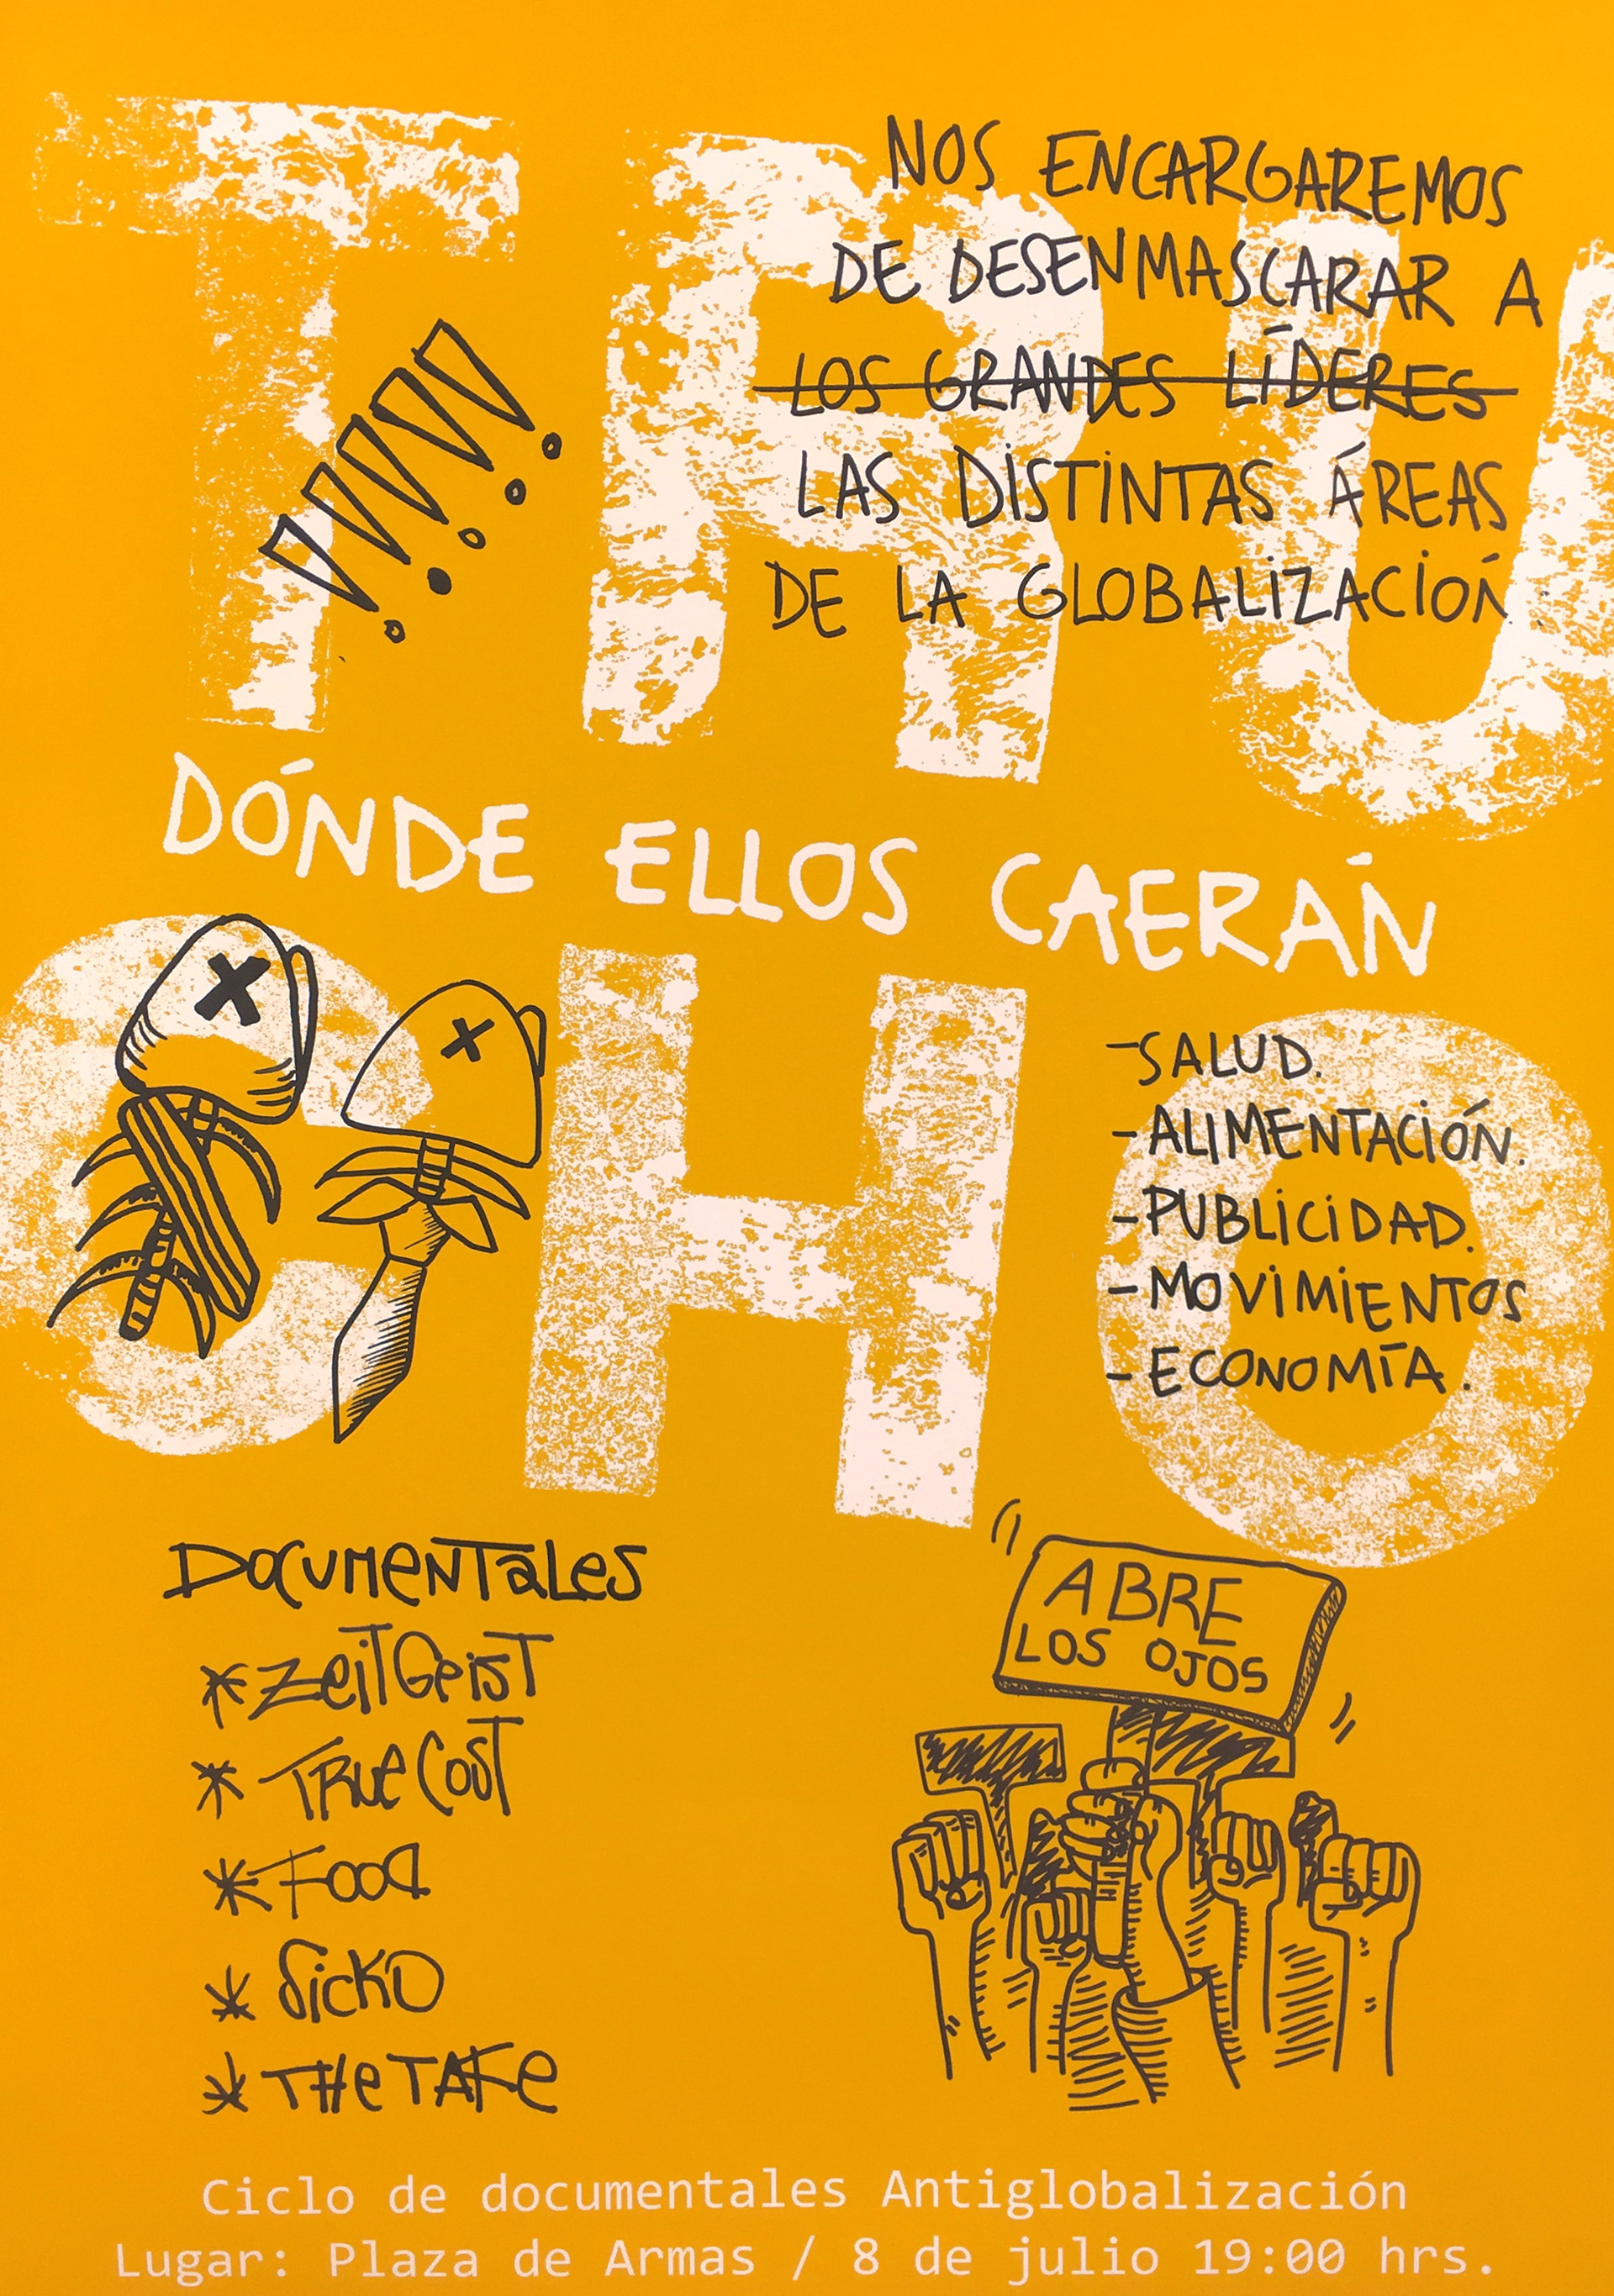 TRU
NOS ENCARGAREMOS
DE DESENMASCARAR A
LOS GRANDES LÍDERES
LAS DISTINTAS ÁREAS
DE LA GLOBALIZACIÓN.
!!!!!
DÓNDE ELLOS CAERÁN
CHO
-SALUD.
-ALIMENTACIÓN.
-PUBLICIDAD.
-MOVIMIENTOS
-ECONOMÍA.
DocumenTaLes
*ZeiTGeisT
*TRueCosT
*Food
*SicKO
*THeTAKe
ABRE
LOS OJOS
Ciclo de documentales Antiglobalización
Lugar: Plaza de Armas / 8 de julio 19:00 hrs.